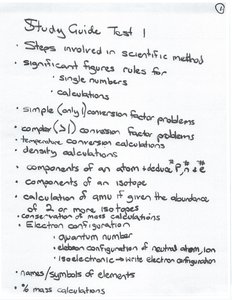 1
Study Guide Test 1
· Steps involved in scientific method
· significant figures rules for
· single numbers
· calculations
· simple (only 1) conversion factor problems
· complex (>1) conversion factor problems
· temperature conversion calculations
· density calculations
· components of an atom + deduce # p, n + e
· components of an isotope
· calculation of amu if given the abundance
of 2 or more isotopes
· conservation of mass calculations
· Electron configuration
· quantum number
· electron configuration of neutral atom, ion
· isoelectronic → write electron configuration
· names/symbols of elements
· % mass calculations